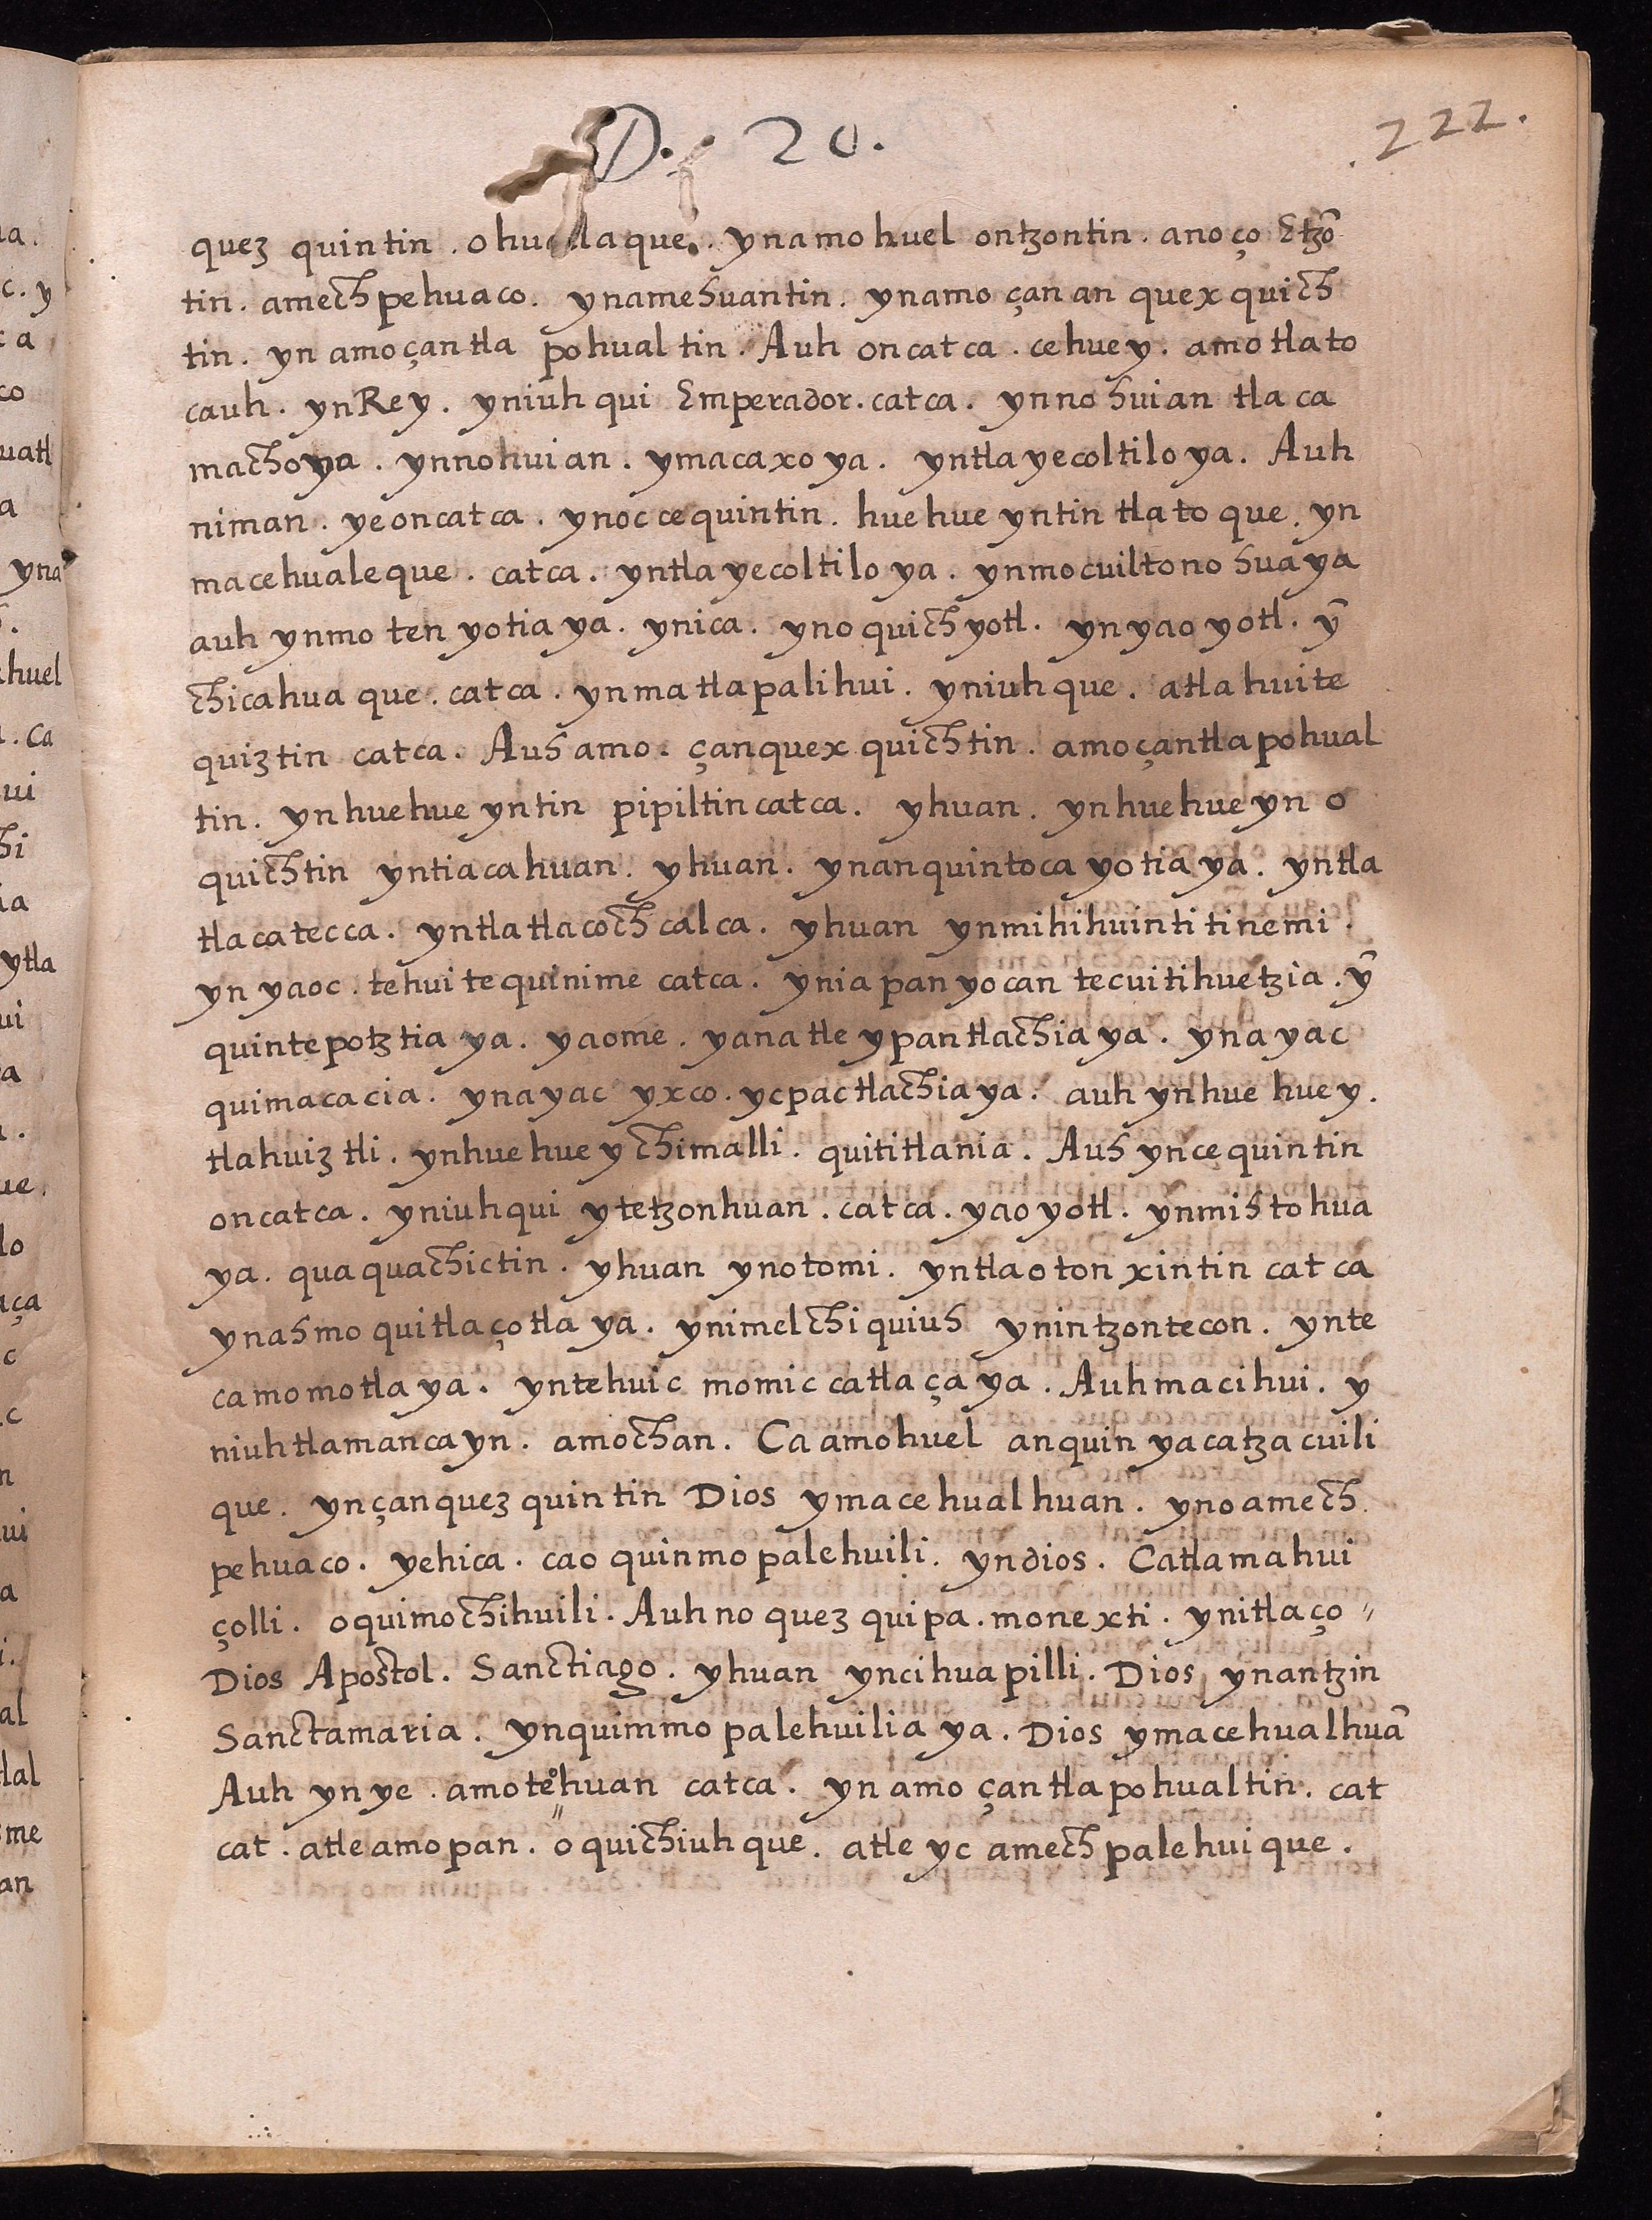 D. 20.
.222.
quez quintin . ohuallaque . ynamo huel ontzontin . anoço Etzō
tin . amechpehuaco . ynamehuantin . ynamo çanan quexquich
tin . yn amoçantla pohualtin . Auh oncatca . cehuey . amotlato
cauh . ynRey . yniuhqui Emperador . catca . ynnohuian tlaca
machoya . ynnohuian . ymacaxoya . yntlayecoltiloya . Auh
niman . yeoncatca . ynoccequintin . huehueyntin tlatoque . yn
macehualeque . catca . yntlayecoltiloya . ynmocuiltonohuaya
auh ynmo tenyotiaya . ynica . ynoquichyotl . ynyaoyotl . ȳ
chicahuaque . catca . ynmatlapalihui . yniuhque . atlahuite
quiztin catca . Auh amo . çanquexquichtin . amoçantlapohual
tin . ynhuehueyntin pipiltin catca . yhuan . ynhuehueyn o
quichtin yntiacahuan . yhuan . ynanquintocayotiaya . yntla
tlacatecca . yntlatlacochcalca . yhuan ynmihihuintitinemi .
yn yaoc . tehuitequinime catca . yniapanyocan tecuitihuetzia . ȳ
quintepotztiaya . yaome . yanatle ypantlachiaya . ynayac
quimacacia . ynayac yxco . ycpactlachiaya . auh ynhuehuey .
tlahuiztli . ynhuehuey chimalli . quititlania . Auh yncequintin
oncatca . yniuhqui ytetzonhuan . catca . yaoyotl . ynmihtohua
ya . quaquachictin . yhuan ynotomi . yntlaotonxintin catca
ynahmo quitlaçotlaya . ynimelchiquiuh ynintzontecon . ynte
camomotlaya . yntehuic momiccatlaçaya . Auhmacihui . y
niuhtlamancayn . amochan . Ca amohuel anquinyacatzacuili
que . ynçanquezquintin Dios ymacehualhuan . ynoamech
pehuaco . yehica . caoquinmopalehuili . yndios . Catlamahui
çolli . oquimochihuili . Auhno quezquipa . monexti . ynitlaço〃
Dios Apostol . Sanctiago . yhuan yncihuapilli . Dios ynantzin
Sanctamaria . ynquimmopalehuiliaya . Dios ymacehualhuā
Auh ynye . amoteohuan catca . yn amo çantlapohualtin . cat
cat . atleamopan . oquichiuhque . atle yc amechpalehuique .